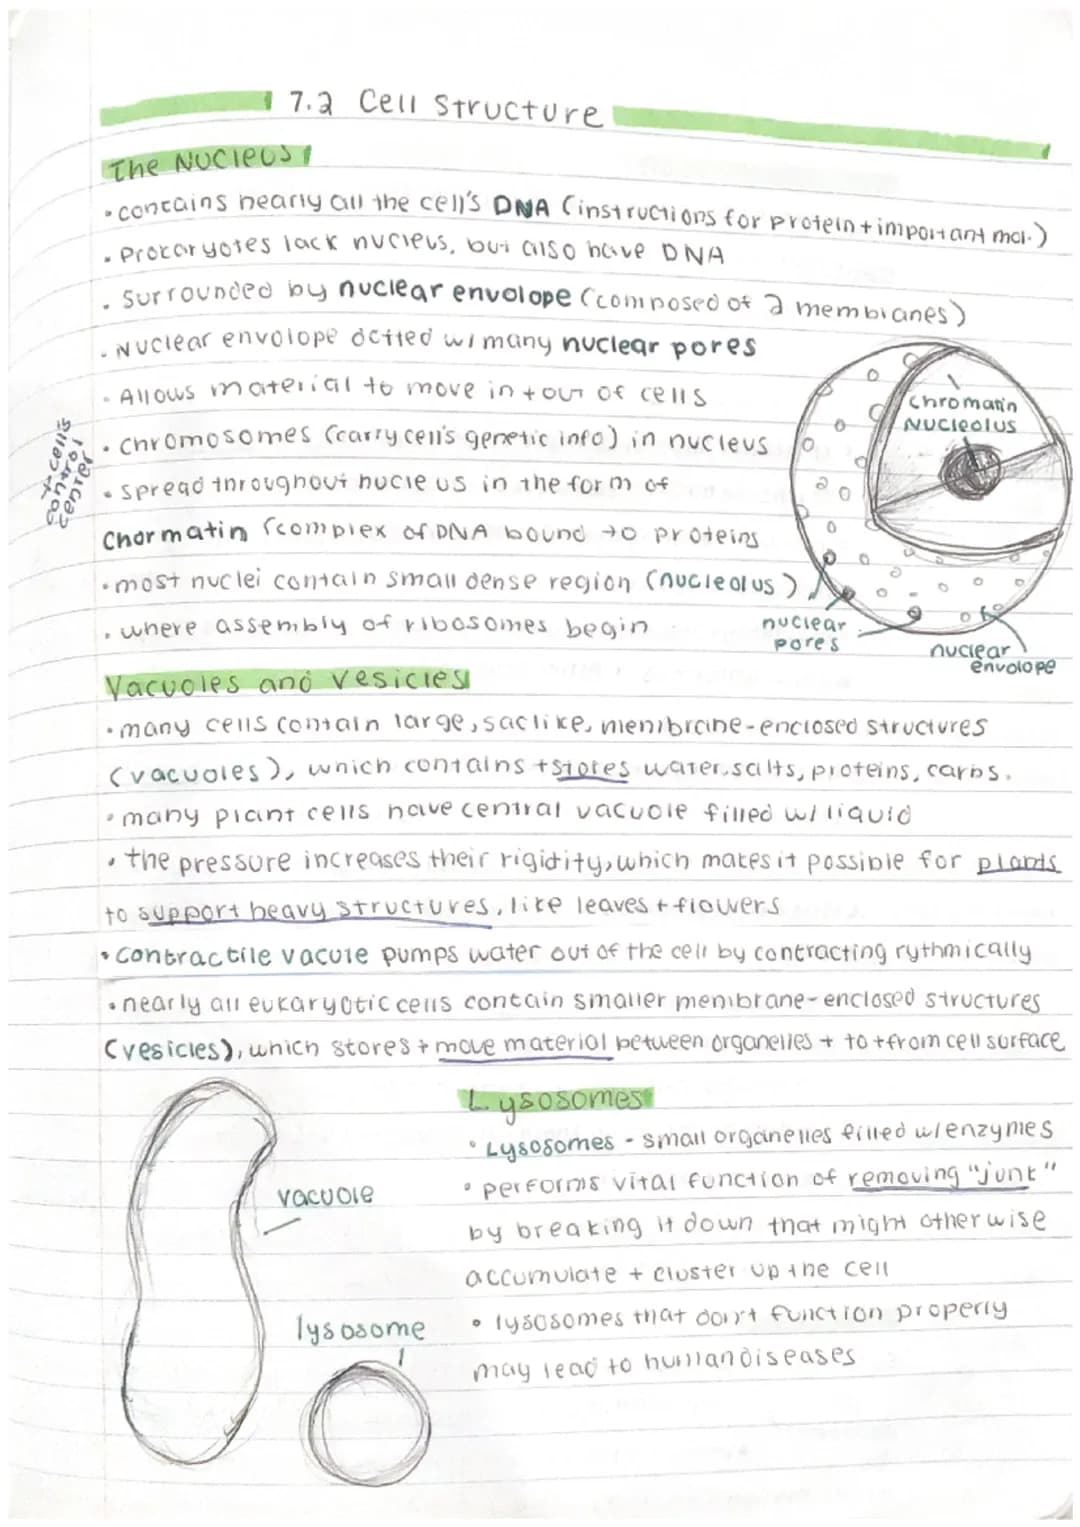 7.2 Cell Structure
The Nucleus
• contains nearly all the cell's DNA (instructions for protein + important mol.)
• Prokaryotes lack nucleus, but also have DNA
• Surrounded by nuclear envolope (composed of 2 membranes)
• Nuclear envolope dotted w/ many nuclear pores
• Allows material to move in + out of cells
• chromosomes (carry cell's genetic info) in nucleus
• spread throughout nucleus in the form of
Chormatin (complex of DNA bound to proteins
• most nuclei contain small dense region (nucleolus)
• where assembly of ribosomes begin
* cell's
control
center
Chromatin
Nucleolus
nuclear
pores
nuclear
envolope
Vacuoles and Vesicles
• many cells contain large, saclike, membrane-enclosed structures
(vacuoles), which contains + stores water, salts, proteins, carbs.
• many plant cells have central vacuole filled w/ liquid
• the pressure increases their rigidity, which makes it possible for plants
to support heavy structures, like leaves + flowers
• Contractile vacule pumps water out of the cell by contracting rythmically
• nearly all eukaryotic cells contain smaller membrane-enclosed structures
(vesicles), which stores + move material between organelles + to + from cell surface
vacuole
lysosome
Lysosomes
• Lysosomes - small organelles filled w/ enzymes
• performs vital function of removing "junk"
by breaking it down that might otherwise
accumulate + cluster up the cell
• lysosomes that don't function properly
may lead to human diseases